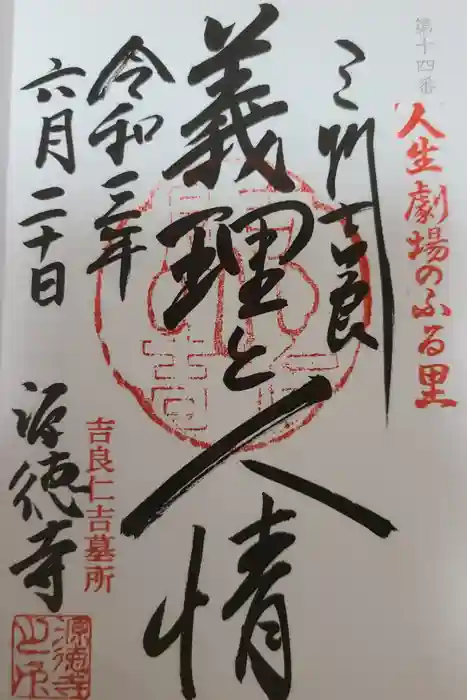 第十四番
人生劇場のふる里
三州吉良
義理と人情
令和三年
六月二十日
吉良仁吉墓所
源徳寺
源徳寺
之印